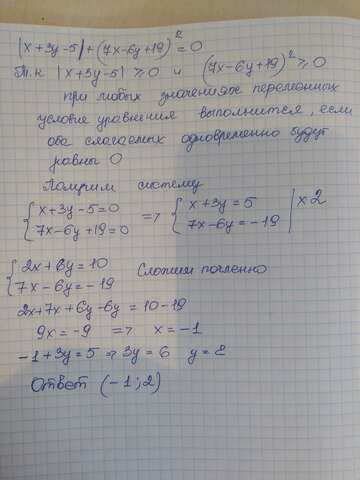 |x+3y-5|+(7x-6y+19)²=0
Т.к |x+3y-5|⩾0 и (7x-6y+19)²⩾0
при любых значениях переменных
условие уравнения выполнится, если
оба слагаемых одновременно будут
равны 0
Получим систему
{x+3y-5=0 => {x+3y=5 | x2
{7x-6y+19=0 {7x-6y=-19
{2x+6y=10 Сложим почленно
{7x-6y=-19
2x+7x+6y-6y=10-19
9x=-9 => x=-1
-1+3y=5 => 3y=6 y=2
Ответ (-1;2)